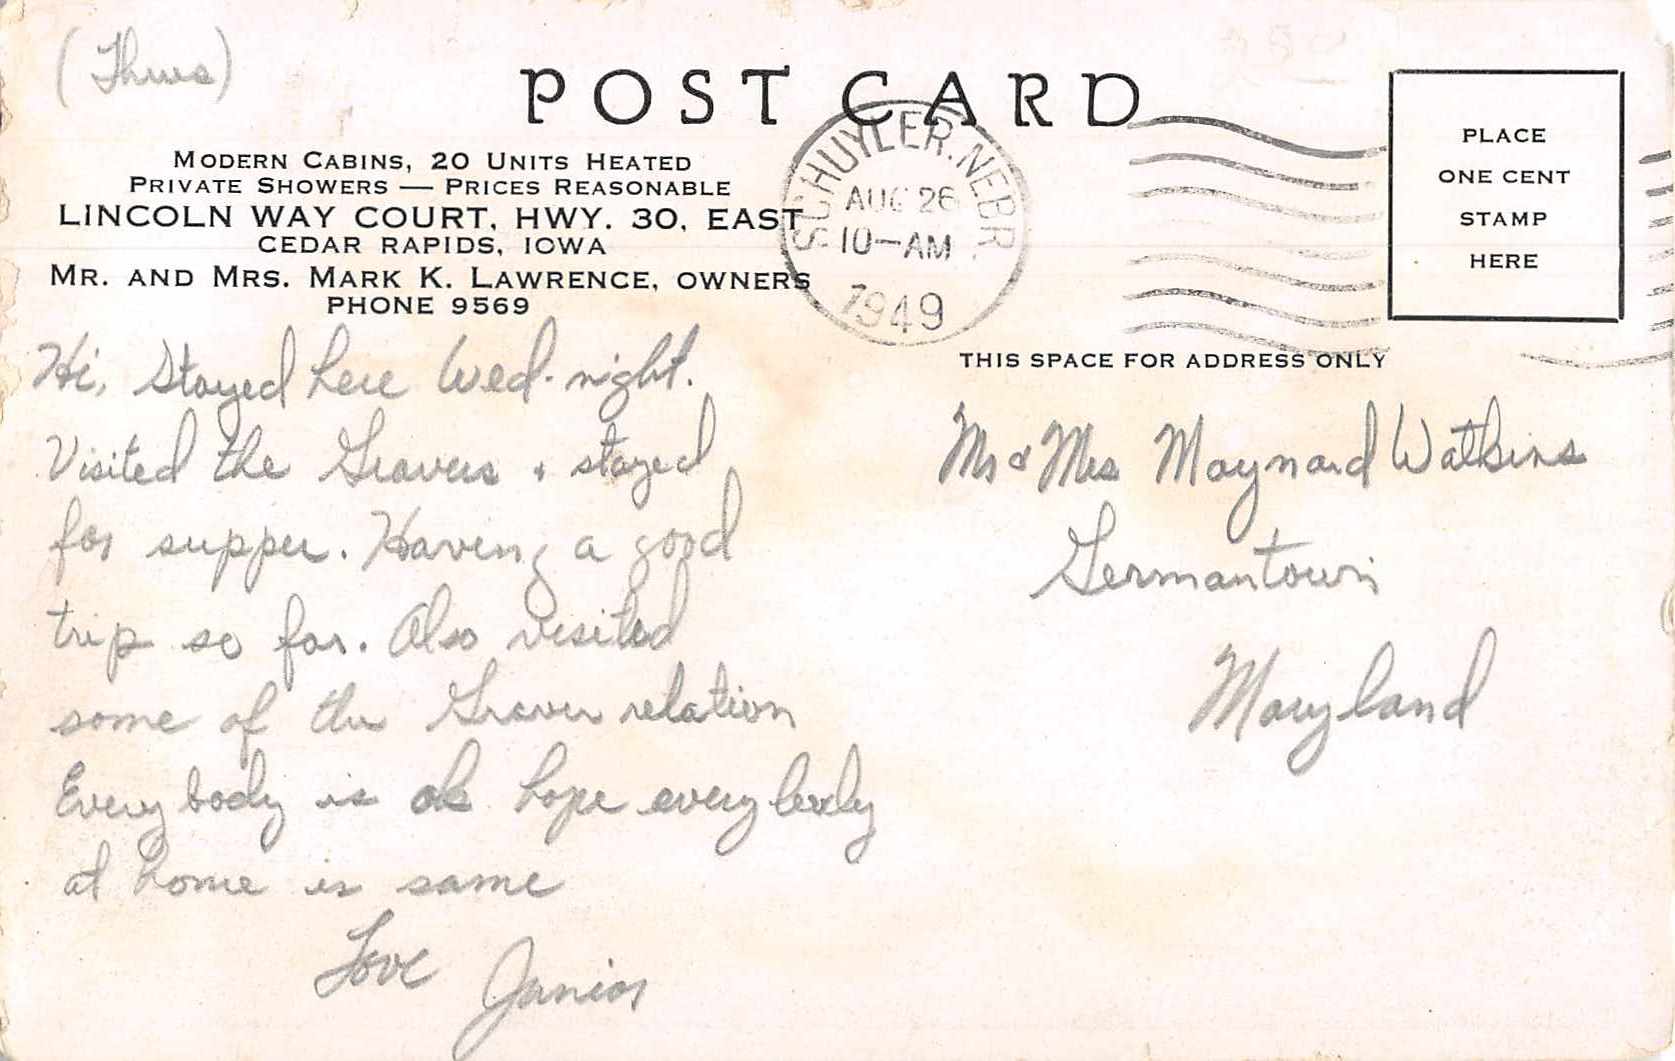 (Thurs)
POST CARD
MODERN CABINS, 20 UNITS HEATED
PRIVATE SHOWERS — PRICES REASONABLE
LINCOLN WAY COURT, HWY. 30, EAST
CEDAR RAPIDS, IOWA
MR. AND MRS. MARK K. LAWRENCE, OWNERS
PHONE 9569
SCHUYLER. NEBR.
AUG 26
10-AM
1949
PLACE
ONE CENT
STAMP
HERE
THIS SPACE FOR ADDRESS ONLY
Hi, Stayed here Wed. night.
Visited the Gravers & stayed
for supper. Having a good
trip so far. Also visited
some of the Graver relation
Everybody is ok hope everybody
at home is same
Love Junior
Mr & Mrs Maynard Watkins
Germantown
Maryland